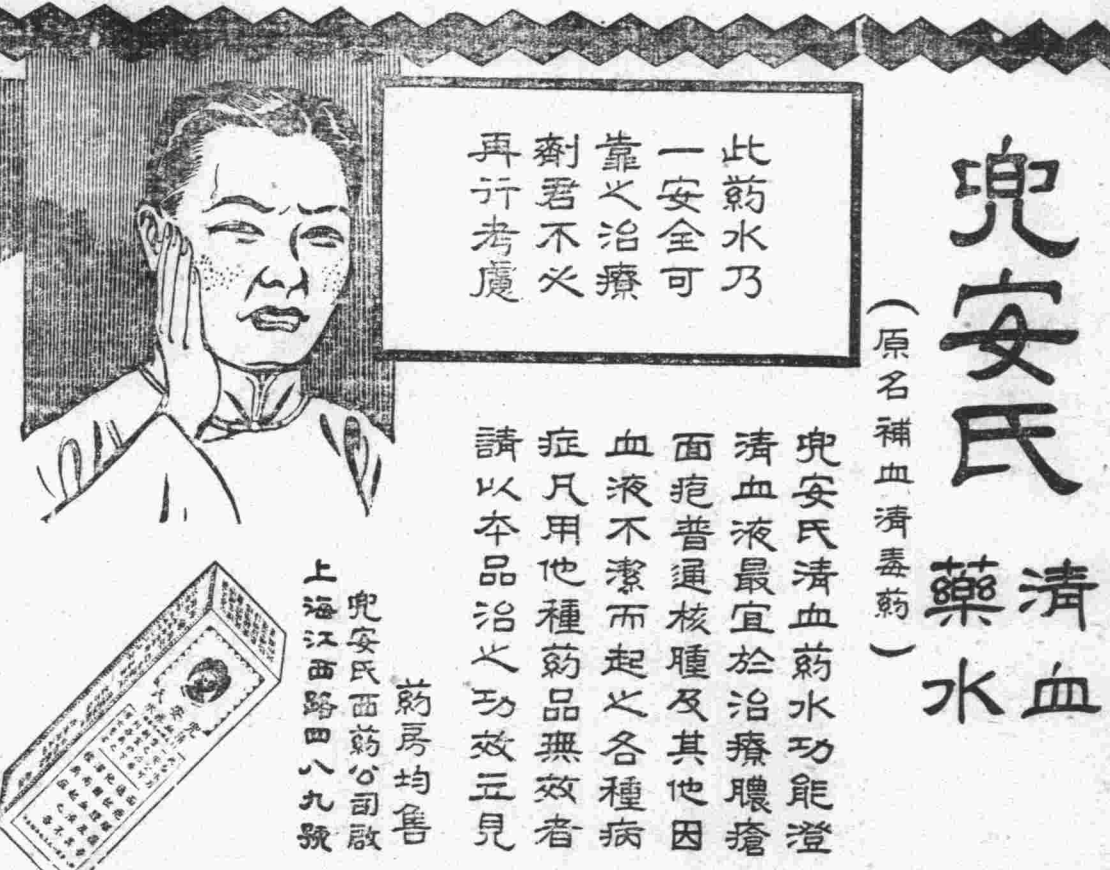 兜安氏
清血
藥水
（原名補血清毒葯）
此葯水乃
一安全可
靠之治療
劑君不必
再行考慮
兜安氏清血葯水功能澄
清血液最宜於治療膿瘡
面疱普通核腫及其他因
血液不潔而起之各種病
症凡用他種葯品無效者
請以本品治之功效立見
葯房均售
兜安氏西葯公司啟
上海江西路四八九號